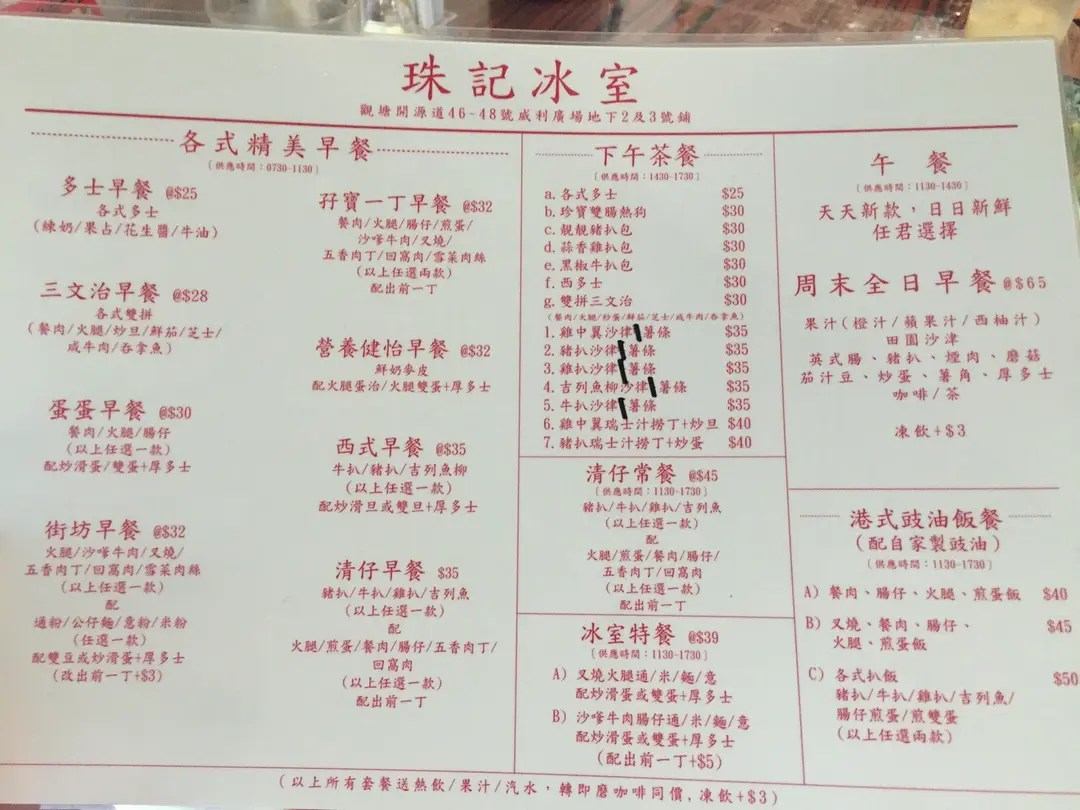 珠記冰室
觀塘開源道46-48號威利廣場地下2及3號鋪
各式精美早餐
(供應時間：0730-1130)
多士早餐 @$25
各式多士
(練奶/果占/花生醬/牛油)
三文治早餐 @$28
各式雙拼
(餐肉/火腿/炒旦/鮮茄/芝士/
咸牛肉/吞拿魚)
蛋蛋早餐 @$30
餐肉/火腿/腸仔
(以上任選一款)
配炒滑蛋/雙蛋+厚多士
街坊早餐 @$32
火腿/沙嗲牛肉/叉燒/
五香肉丁/回窩肉/雪菜肉絲
(以上任選一款)
配
通粉/公仔麵/意粉/米粉
(任選一款)
配雙豆或炒滑蛋+厚多士
(改出前一丁+$3)
孖寶一丁早餐 @$32
餐肉/火腿/腸仔/煎蛋/
沙嗲牛肉/叉燒/
五香肉丁/回窩肉/雪菜肉絲
(以上任選兩款)
配出前一丁
營養健怡早餐 @$32
鮮奶麥皮
配火腿蛋治/火腿雙蛋+厚多士
西式早餐 @$35
牛扒/豬扒/吉列魚柳
(以上任選一款)
配炒滑旦或雙旦+厚多士
清仔早餐 $35
豬扒/牛扒/雞扒/吉列魚
(以上任選一款)
配
火腿/煎蛋/餐肉/腸仔/五香肉丁/
回窩肉
(以上任選一款)
配出前一丁
下午茶餐
(供應時間：1430-1730)
a. 各式多士 $25
b. 珍寶雙腸熱狗 $30
c. 靚靚豬扒包 $30
d. 蒜香雞扒包 $30
e. 黑椒牛扒包 $30
f. 西多士 $30
g. 雙拼三文治 $30
(餐肉/火腿/炒蛋/鮮茄/芝士/咸牛肉/吞拿魚)
1. 雞中翼沙律/薯條 $35
2. 豬扒沙律/薯條 $35
3. 雞扒沙律/薯條 $35
4. 吉列魚柳沙律/薯條 $35
5. 牛扒沙律/薯條 $35
6. 雞中翼瑞士汁撈丁+炒旦 $40
7. 豬扒瑞士汁撈丁+炒蛋 $40
清仔常餐 @$45
(供應時間：1130-1730)
豬扒/牛扒/雞扒/吉列魚
(以上任選一款)
配
火腿/煎蛋/餐肉/腸仔/
五香肉丁/回窩肉
(以上任選一款)
配出前一丁
冰室特餐 @$39
(供應時間：1130-1730)
A) 叉燒火腿通/米/麵/意
配炒滑蛋或雙蛋+厚多士
B) 沙嗲牛肉腸仔通/米/麵/意
配炒滑蛋或雙蛋+厚多士
(配出前一丁+$5)
午餐
(供應時間：1130-1430)
天天新款，日日新鮮
任君選擇
周末全日早餐@$65
果汁(橙汁/蘋果汁/西柚汁)
田園沙津
英式腸、豬扒、煙肉、磨菇
茄汁豆、炒蛋、薯角、厚多士
咖啡/茶
凍飲+$3
港式豉油飯餐
(配自家製豉油)
(供應時間：1130-1730)
A) 餐肉、腸仔、火腿、煎蛋飯 $40
B) 叉燒、餐肉、腸仔、 $45
火腿、煎蛋飯
C) 各式扒飯 $50
豬扒/牛扒/雞扒/吉列魚/
腸仔煎蛋/煎雙蛋
(以上任選兩款)
(以上所有套餐送熱飲/果汁/汽水，轉即磨咖啡同價,凍飲+$3)